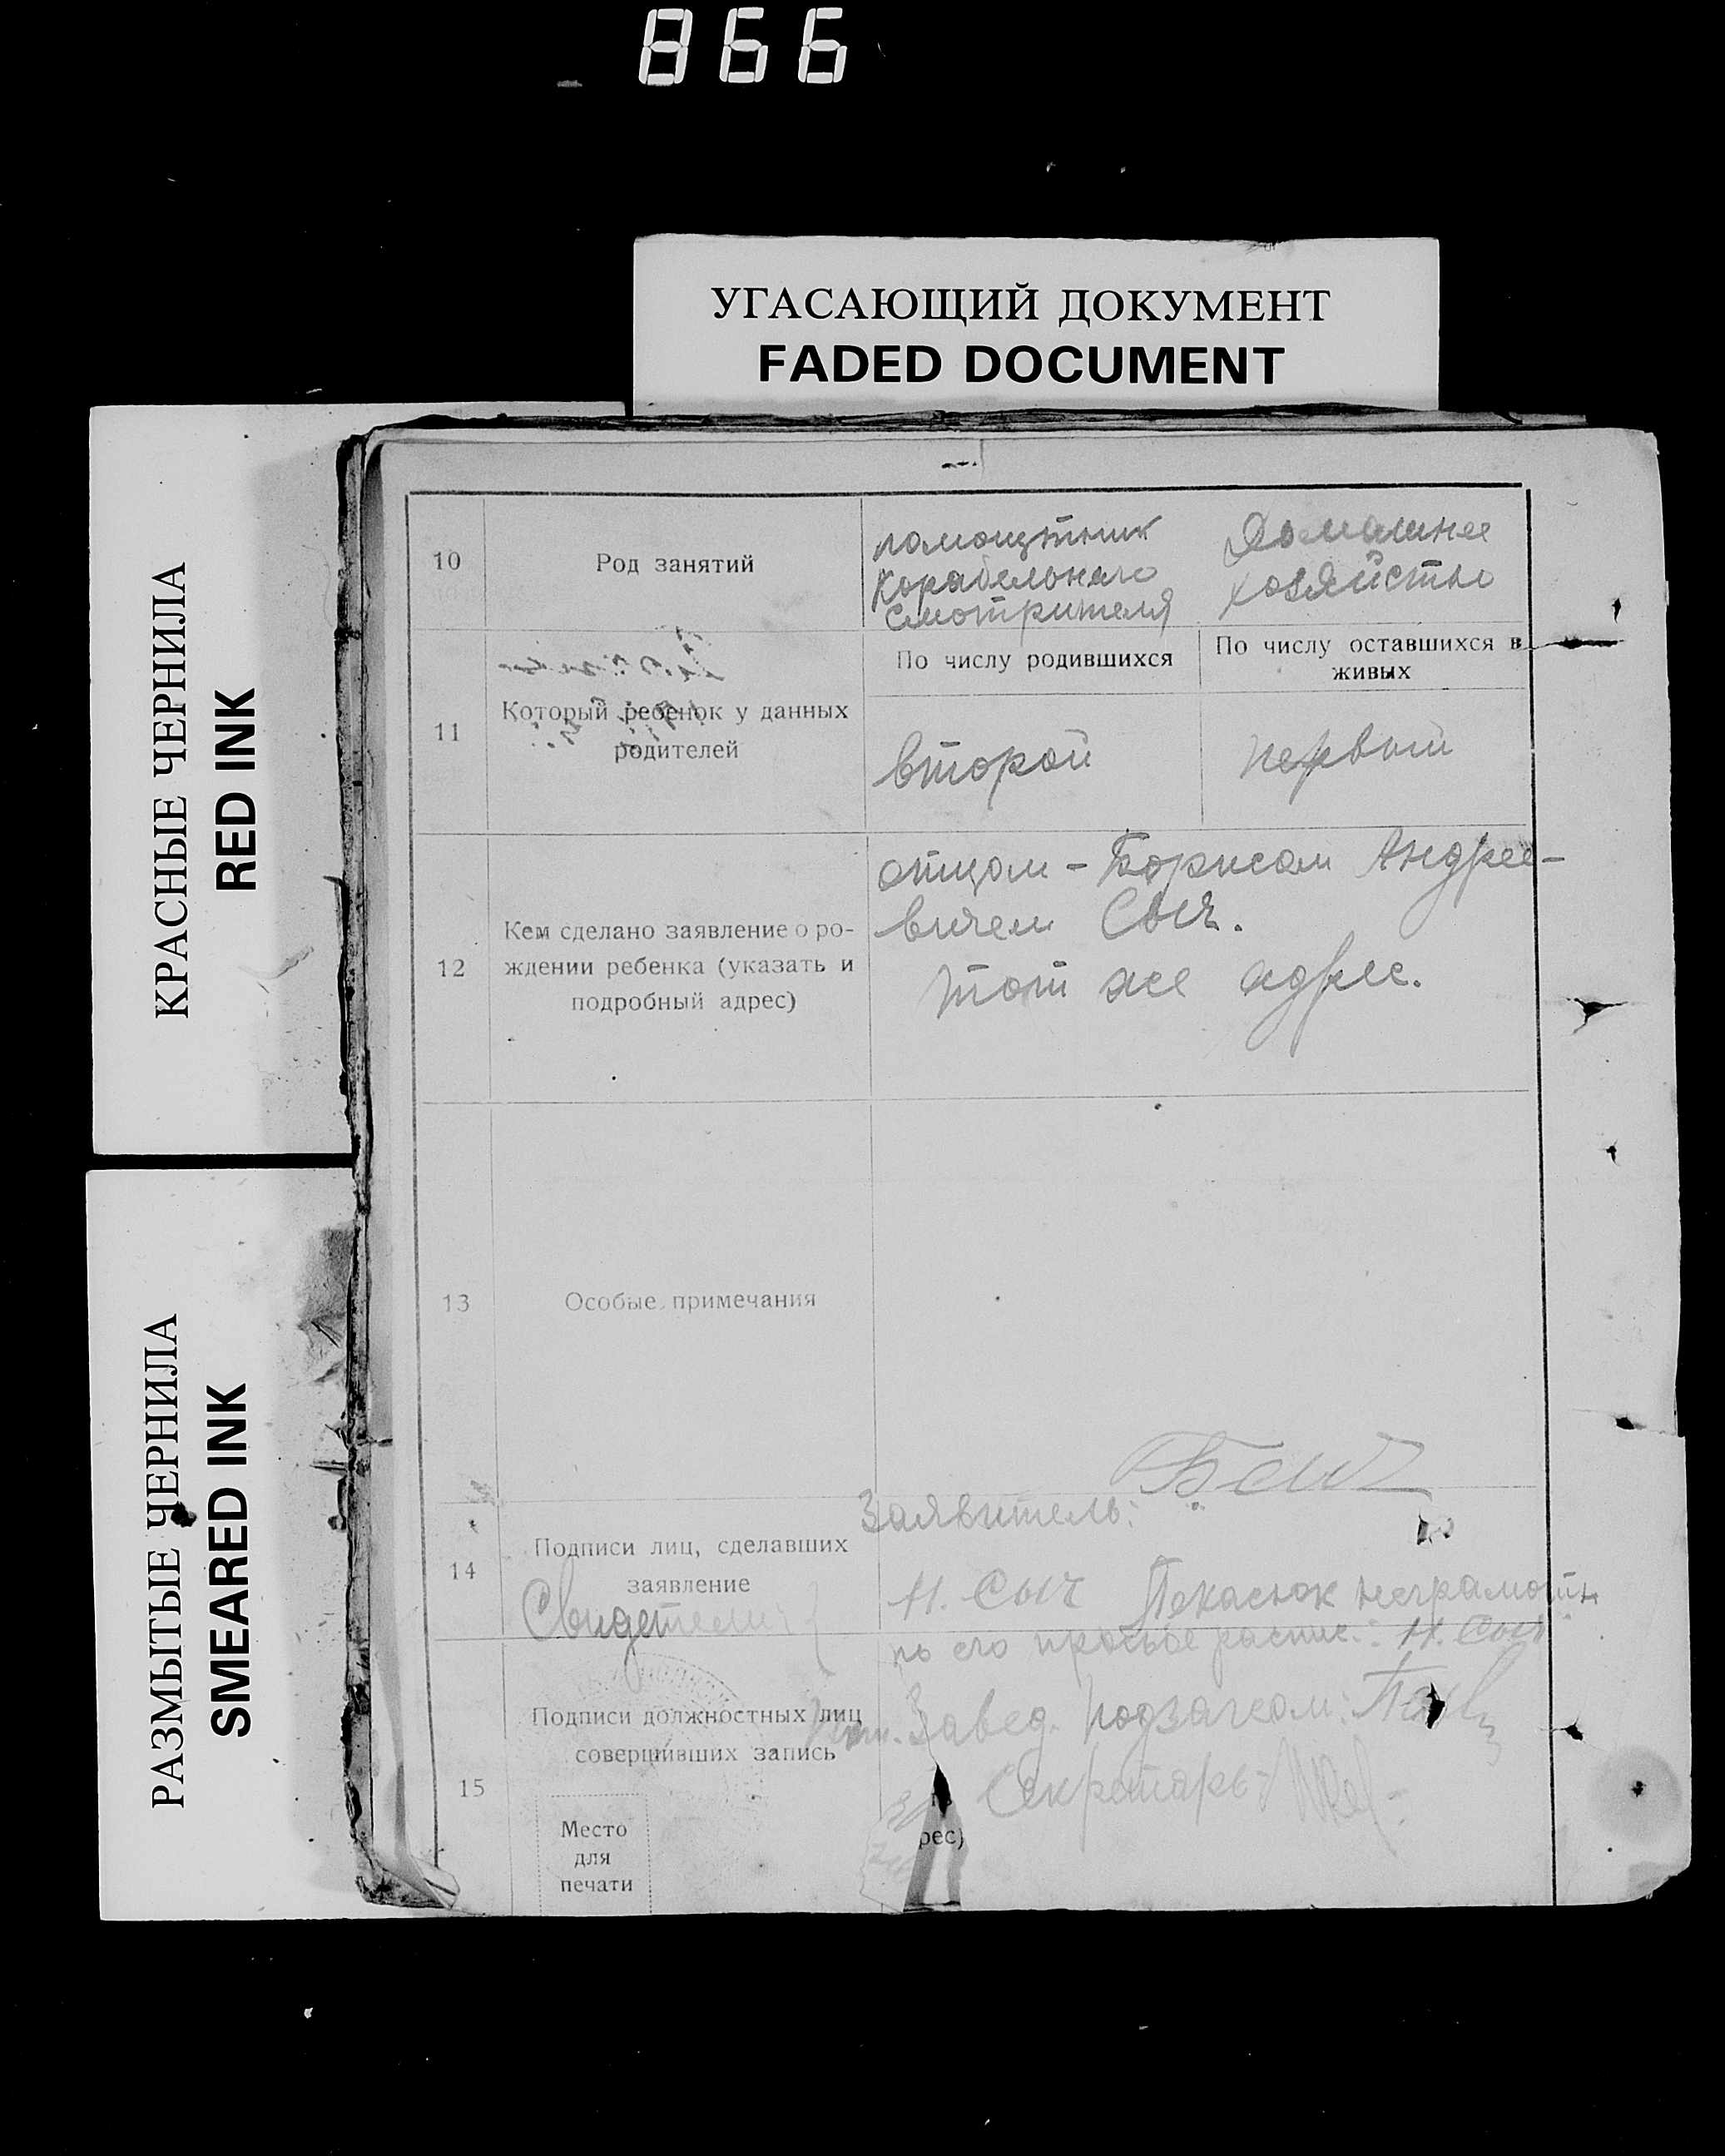 866
УГАСАЮЩИЙ ДОКУМЕНТ
FADED DOCUMENT
КРАСНЫЕ ЧЕРНИЛА
RED INK
РАЗМЫТЫЕ ЧЕРНИЛА
SMEARED INK
10
Род занятий
помощтник
корабельного
смотрителя
Домашнее
хозяйство
11
Который ребенок у данных
родителей
По числу родившихся
второй
По числу оставшихся в
живых
первый
12
Кем сделано заявление о ро-
ждении ребенка (указать и
подробный адрес)
отцом - Борисом Андрее-
вичем Сыч.
тот же адрес.
13
Особые примечания
14
Подписи лиц, сделавших
заявление
Свидетели:
Заявитель:
Н. Сыч Пекасюк неграмотн
по его просьбе распис.: Н. Сыч
15
Подписи должностных лиц
совершивших запись
Место
для
печати
Завед. подзагсом:
Секретарь
рес)